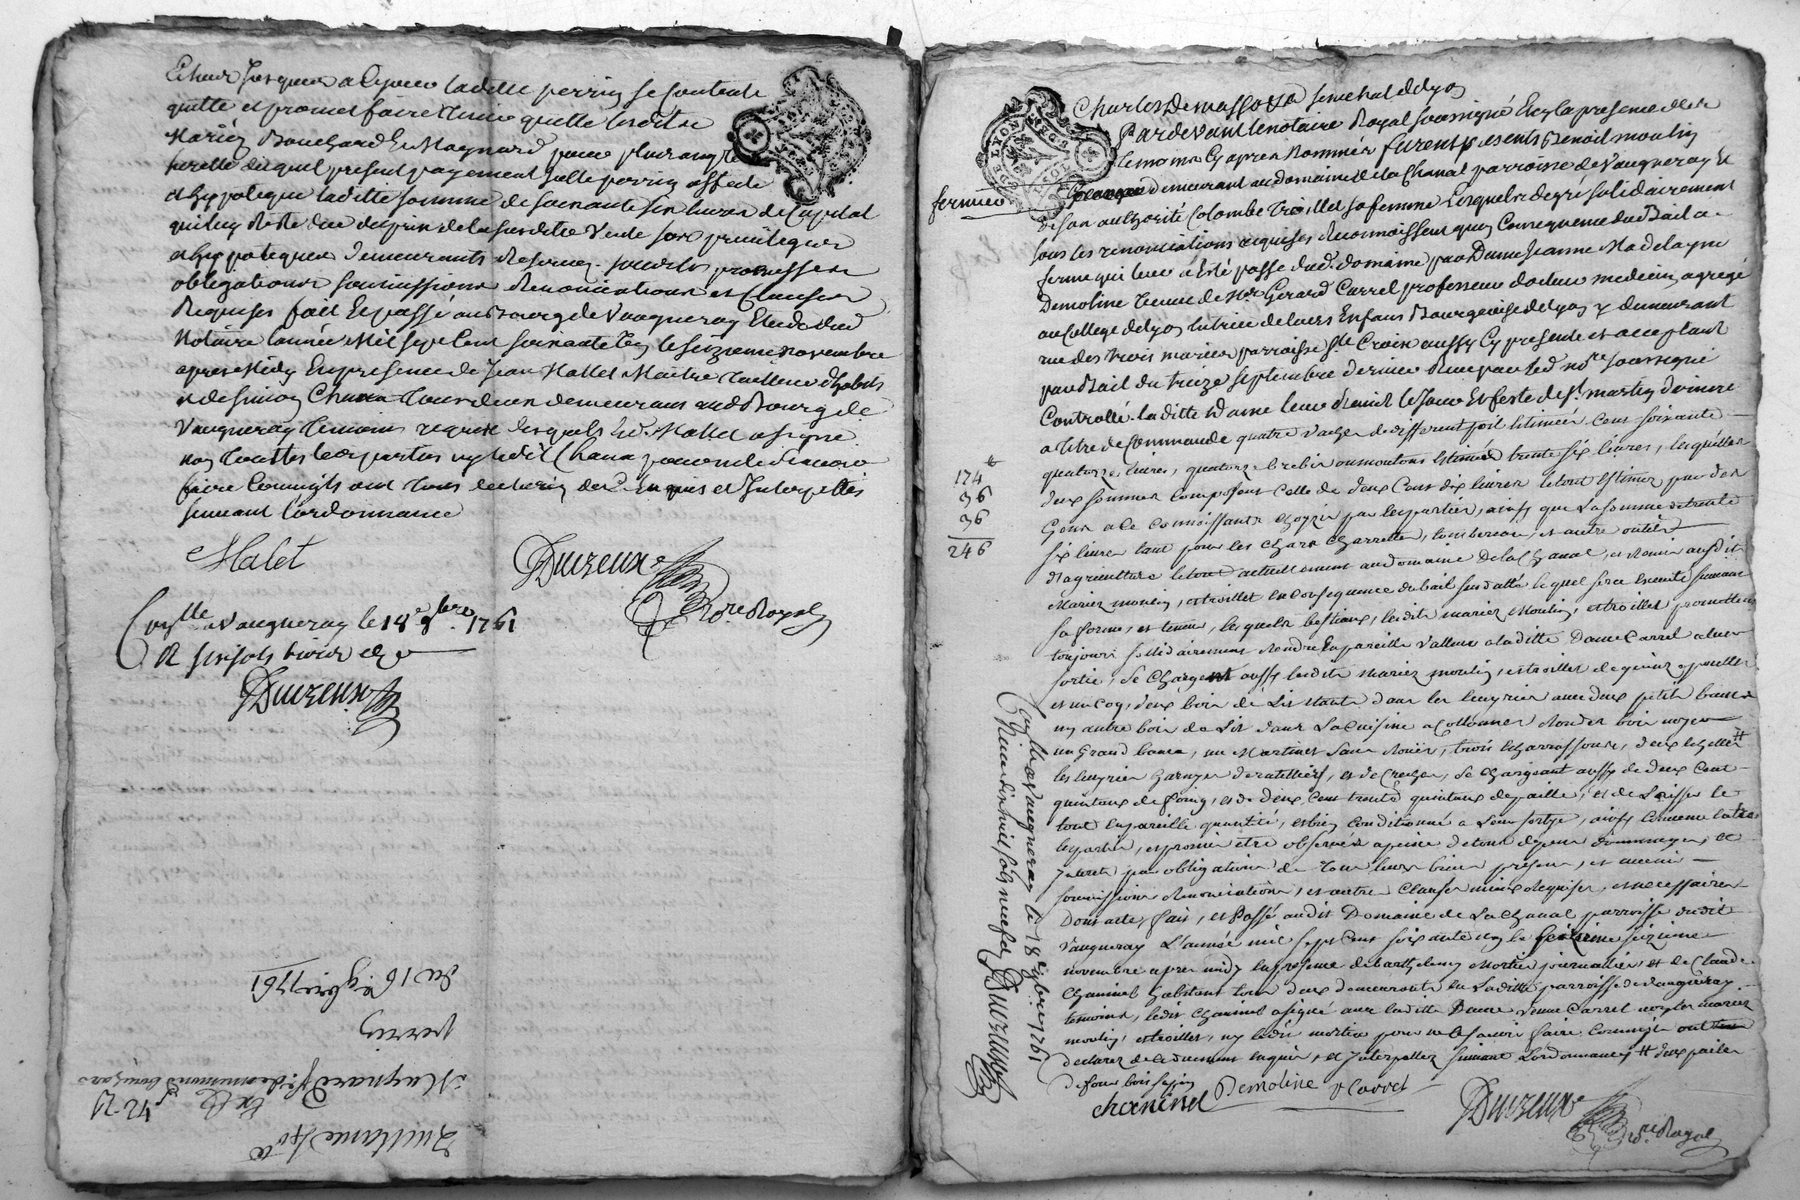 Echus jusques a ce jour laditte perrin se Contente
quitte et promet faire tenir quitte lesdits
Mariés Bouchard & Magnard pour plus ample
duquel present payement laditte perrin affecte
et hyppoteque laditte somme de soixante six livres de Capital
qui luy Reste due du prix de la susditte Vente ses privileges
et hyppoteques demeurants Reservés
obligations soumissions Renonciations et Clauses
Requises fait et passé au Bourg de Vaugneray Etude dud
Notaire l'année Mil sept Cent soixante Un le seizieme novembre
apres Midy En presence de Jean Mallet Maître tailleur d'habits
& de simon Chana demeurans aud Bourg de
Vaugneray temoins requis lesquels led. Mallet a signé
non touttes les parties ny ledit Chana pour ne le scavoir
faire Comm'ils ont tous declaré de ce Enquis et Interpellés
suivant l'ordonnance
Malet
Duizeux
No.re Royal
Con.llé a Vaugneray le 18e 9bre 1761
R six sols
Duizeux
du 16 9bre 1761
perrin
Magnard
Quittance
Charles De masso Sénéchal de Lyon
Pardevant le notaire Royal soussigné Et en la presence des
temoins Cy apres Nommés furent presents Benoit moulin
fermier
demeurant au domaine de la Chanal parroisse de Vaugneray Et
de son authorité Colombe Troillet sa femme Lesquels de gré solidairement
sous les renonciations requises Reconnoissent qu'en Consequence du Bail a
ferme qui leur a Eté passé dud. domaine par Dame Jeanne Madelayne
Demoline Veuve de Mr Gerard Carret professeur docteur medecin agregé
au College de Lyon tutrice de leurs Enfans Bourgeoise de Lyon y demeurant
rue des trois maries parroisse Ste Croix aussy Cy presente et acceptant
par Bail du treize septembre dernier Reçu par led. no.re soussigné
Controllé laditte Dame leur Remit le Jour Et feste de St. martin dernier
a titre de Commande quatre Vaches de different poil Estimées Cent soixante
174#
quatorze livres, quatorze brebis ou moutons Estimés trente six livres, lesquelles
36
deux sommes Composent Celle de deux Cent dix livres le tout Estimé par des
36
Gens a ce Connoissants choysis par les parties, ainsy que La somme de trente
246
six livres tant pour les chars charrettes, tombereau, et autre outils
d'agriculture le tout actuellement au domaine de la Chanal, et Remis ausdits
Mariés moulin, et troillet en Consequence du bail susdatté lequel sera Executé suivant
sa forme, et teneur, lesquels bestiaux, lesdits mariés Moulin, et troillet promettent
toujours solidairement Rendre En pareille Valleur a laditte Dame Carret a leur
sortie, se Chargent aussy lesdits mariés moulin, et troillet de quinze poulles
et un Coq, deux bois de Lit dans les ecuyries avec deux petits bancs
un autre bois de Lit dans La Cuisine a Collonnes Rondes bois noyer
un Grand banc, un
les ecuyries Garnyes de ratelliers, et de Creches, se Chargeant aussy de deux Cent
quintaux de foing, et de deux Cent trente quintaux de paille, et de Laisser le
tout En pareille quantité, et bien Conditionné a Leur sortye, ainsy Convenu
les parties, et promis etre observés a peine de tous depens dommages, et
Interets par obligation de tous leurs biens presens, et avenir
soumissions Renonciations, et autres Clauses mieux Requises, et necessaires
Dont acte, fait, et Passé audit Domaine de La Chanal parroisse dudit
Vaugneray L'année mil sept Cent soixante un le seizieme
novembre apres midy En presence de barthelemy Mortier journallier, et de Claude
Chaninel habitans tous deux demeurants En Laditte parroisse de Vaugneray
temoins, ledit Chaninel a signé avec laditte Dame Veuve Carret non les mariés
moulin, et troillet, ny ledit mortier pour ne le scavoir faire Comm'ils ont
declarez de ce dument Enquis, et Interpellez suivant Lordonnance # deux
de four bois sapin
chaninel Demoline V Carret
Duizeux
No.re Royal
Con.llé a Vaugneray le 18e 9bre 1761
Duizeux